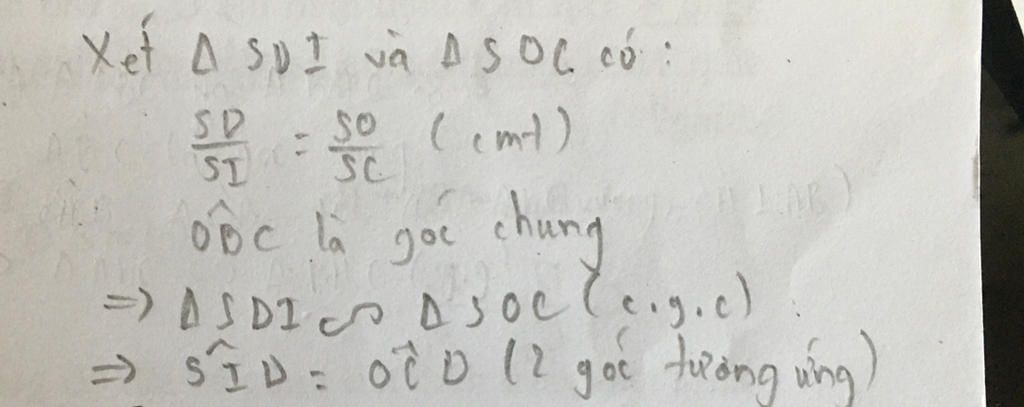 Xét Δ SDI và Δ SOC có:
SD/SI = SO/SC (cmt)
ÔDC là góc chung
=> Δ SDI ∽ Δ SOC (c.g.c)
=> SÎD = OĈD (2 góc tương ứng)